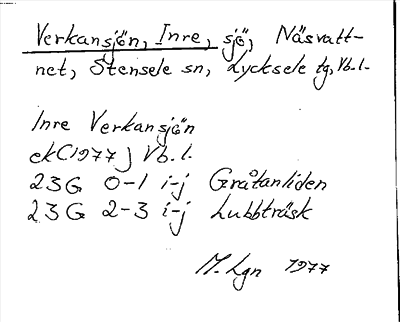 Verkansjön, Inre, sjö, Näsvatt-
net, Stensele sn, Lycksele tg, Vb.l.
Inre Verkansjön
ek(1977) Vb.l.
23G 0-1 i-j Gråtanliden
23G 2-3 i-j Lubbträsk
M. Lgn 1977